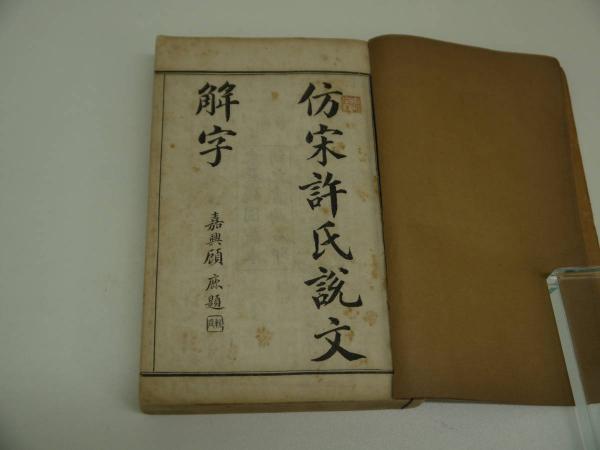 仿宋許氏說文
解字
嘉興顧㢘題